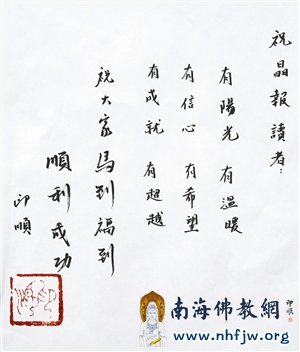 祝晶報讀者：
有陽光 有溫暖
有信心 有希望
有成就 有超越
祝大家馬到福到
順利成功
印順
印順
南海佛教網
www.nhfjw.org